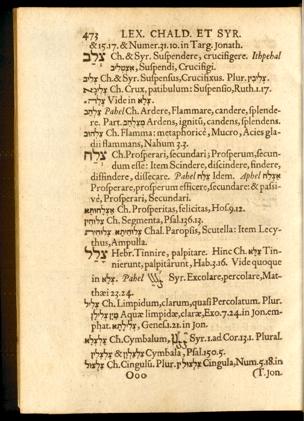 473 LEX. CHALD. ET SYR.
&15.17. & Numer.21.10. in Targ. Jonath.
צלב Ch. & Syr. Suspendere, crucifigere. Ithpehal
אצטליב, Suspendi, Crucifigi.
צליב Ch. & Syr. Suspensus, Crucifixus. Plur. צליבין
Ch. Crux, patibulum: Suspensio, Ruth.1.17.
Vide in צלא.
צלה Pahel Ch. Ardere, Flammare, candere, splende-
re. Part. Ardens, ignitus, candens, splendens.
Ch. Flamma: metaphoricé, Mucro, Acies gla-
dii flammans, Nahum 3.3.
צלח Ch. Prosperari, secundari; Prosperum, secun-
dum esse: Item Scindere, discindere, findere,
diffindere, dissecare. Pahel צלח Idem. Aphel אצלח
Prosperare, prosperum efficere, secundare: & passi-
vé, Prosperari, Secundari.
Ch. Prosperitas, felicitas, Hos.9.12.
Ch. Segmenta, Psal.136.13.
Chal. Paropsis, Scutella: Item Lecy-
thus, Ampulla.
צלל Hebr. Tinnire, palpitare. Hinc Ch. צלא Tin-
nierunt, palpitarunt, Hab.3.16. Vide quoque
in צלא. Pahel Syr. Excolare, percolare, Mat-
thæi 23.24.
צליל Ch. Limpidum, clarum, quasi Percolatum. Plur.
מיין צלילין Aquæ limpidæ, claræ, Exo.7.24. in Jon. em-
phat. צלילתא, Genes.1.21. in Jon.
צלצלא Ch. Cymbalum, Syr. 1. ad Cor.13.1. Plural.
& צלצלין Cymbala, Psal.150.5.
צלצול Ch. Cingulũ. Plur. צלצולין Cingula, Num.5.18. in
Ooo (T. Jon.